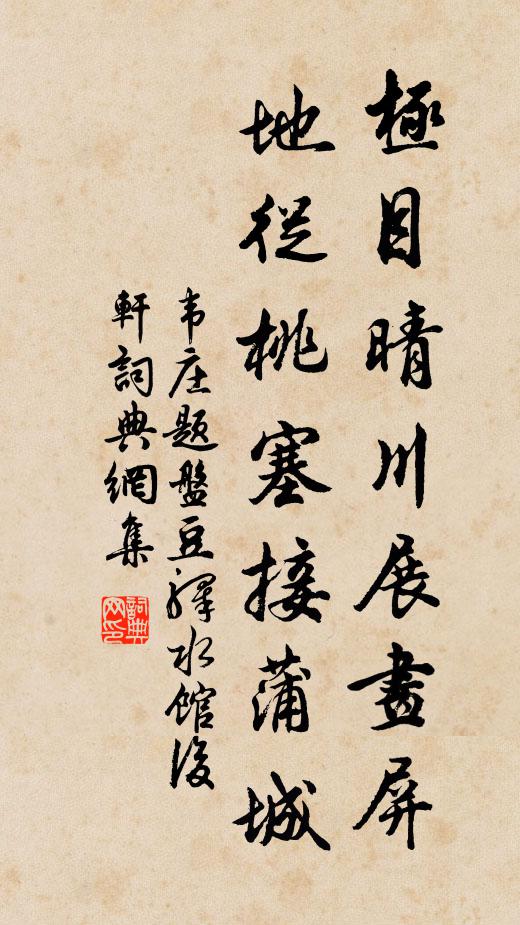 極目晴川展畫屏
地從桃塞接蒲城
韦庄题盤豆驛水館後
軒詞典網集
詞典网印